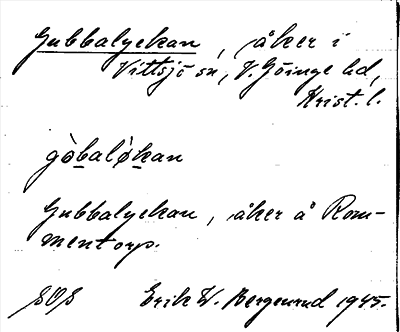 Gubbalyckan, åker i
Vittsjö sn, V. Göinge hd,
Krist. l.
gòbaløkan
Gubbalyckan, åker å Rom-
mentorp.
SOS Erik W. Bergenrud 1945.